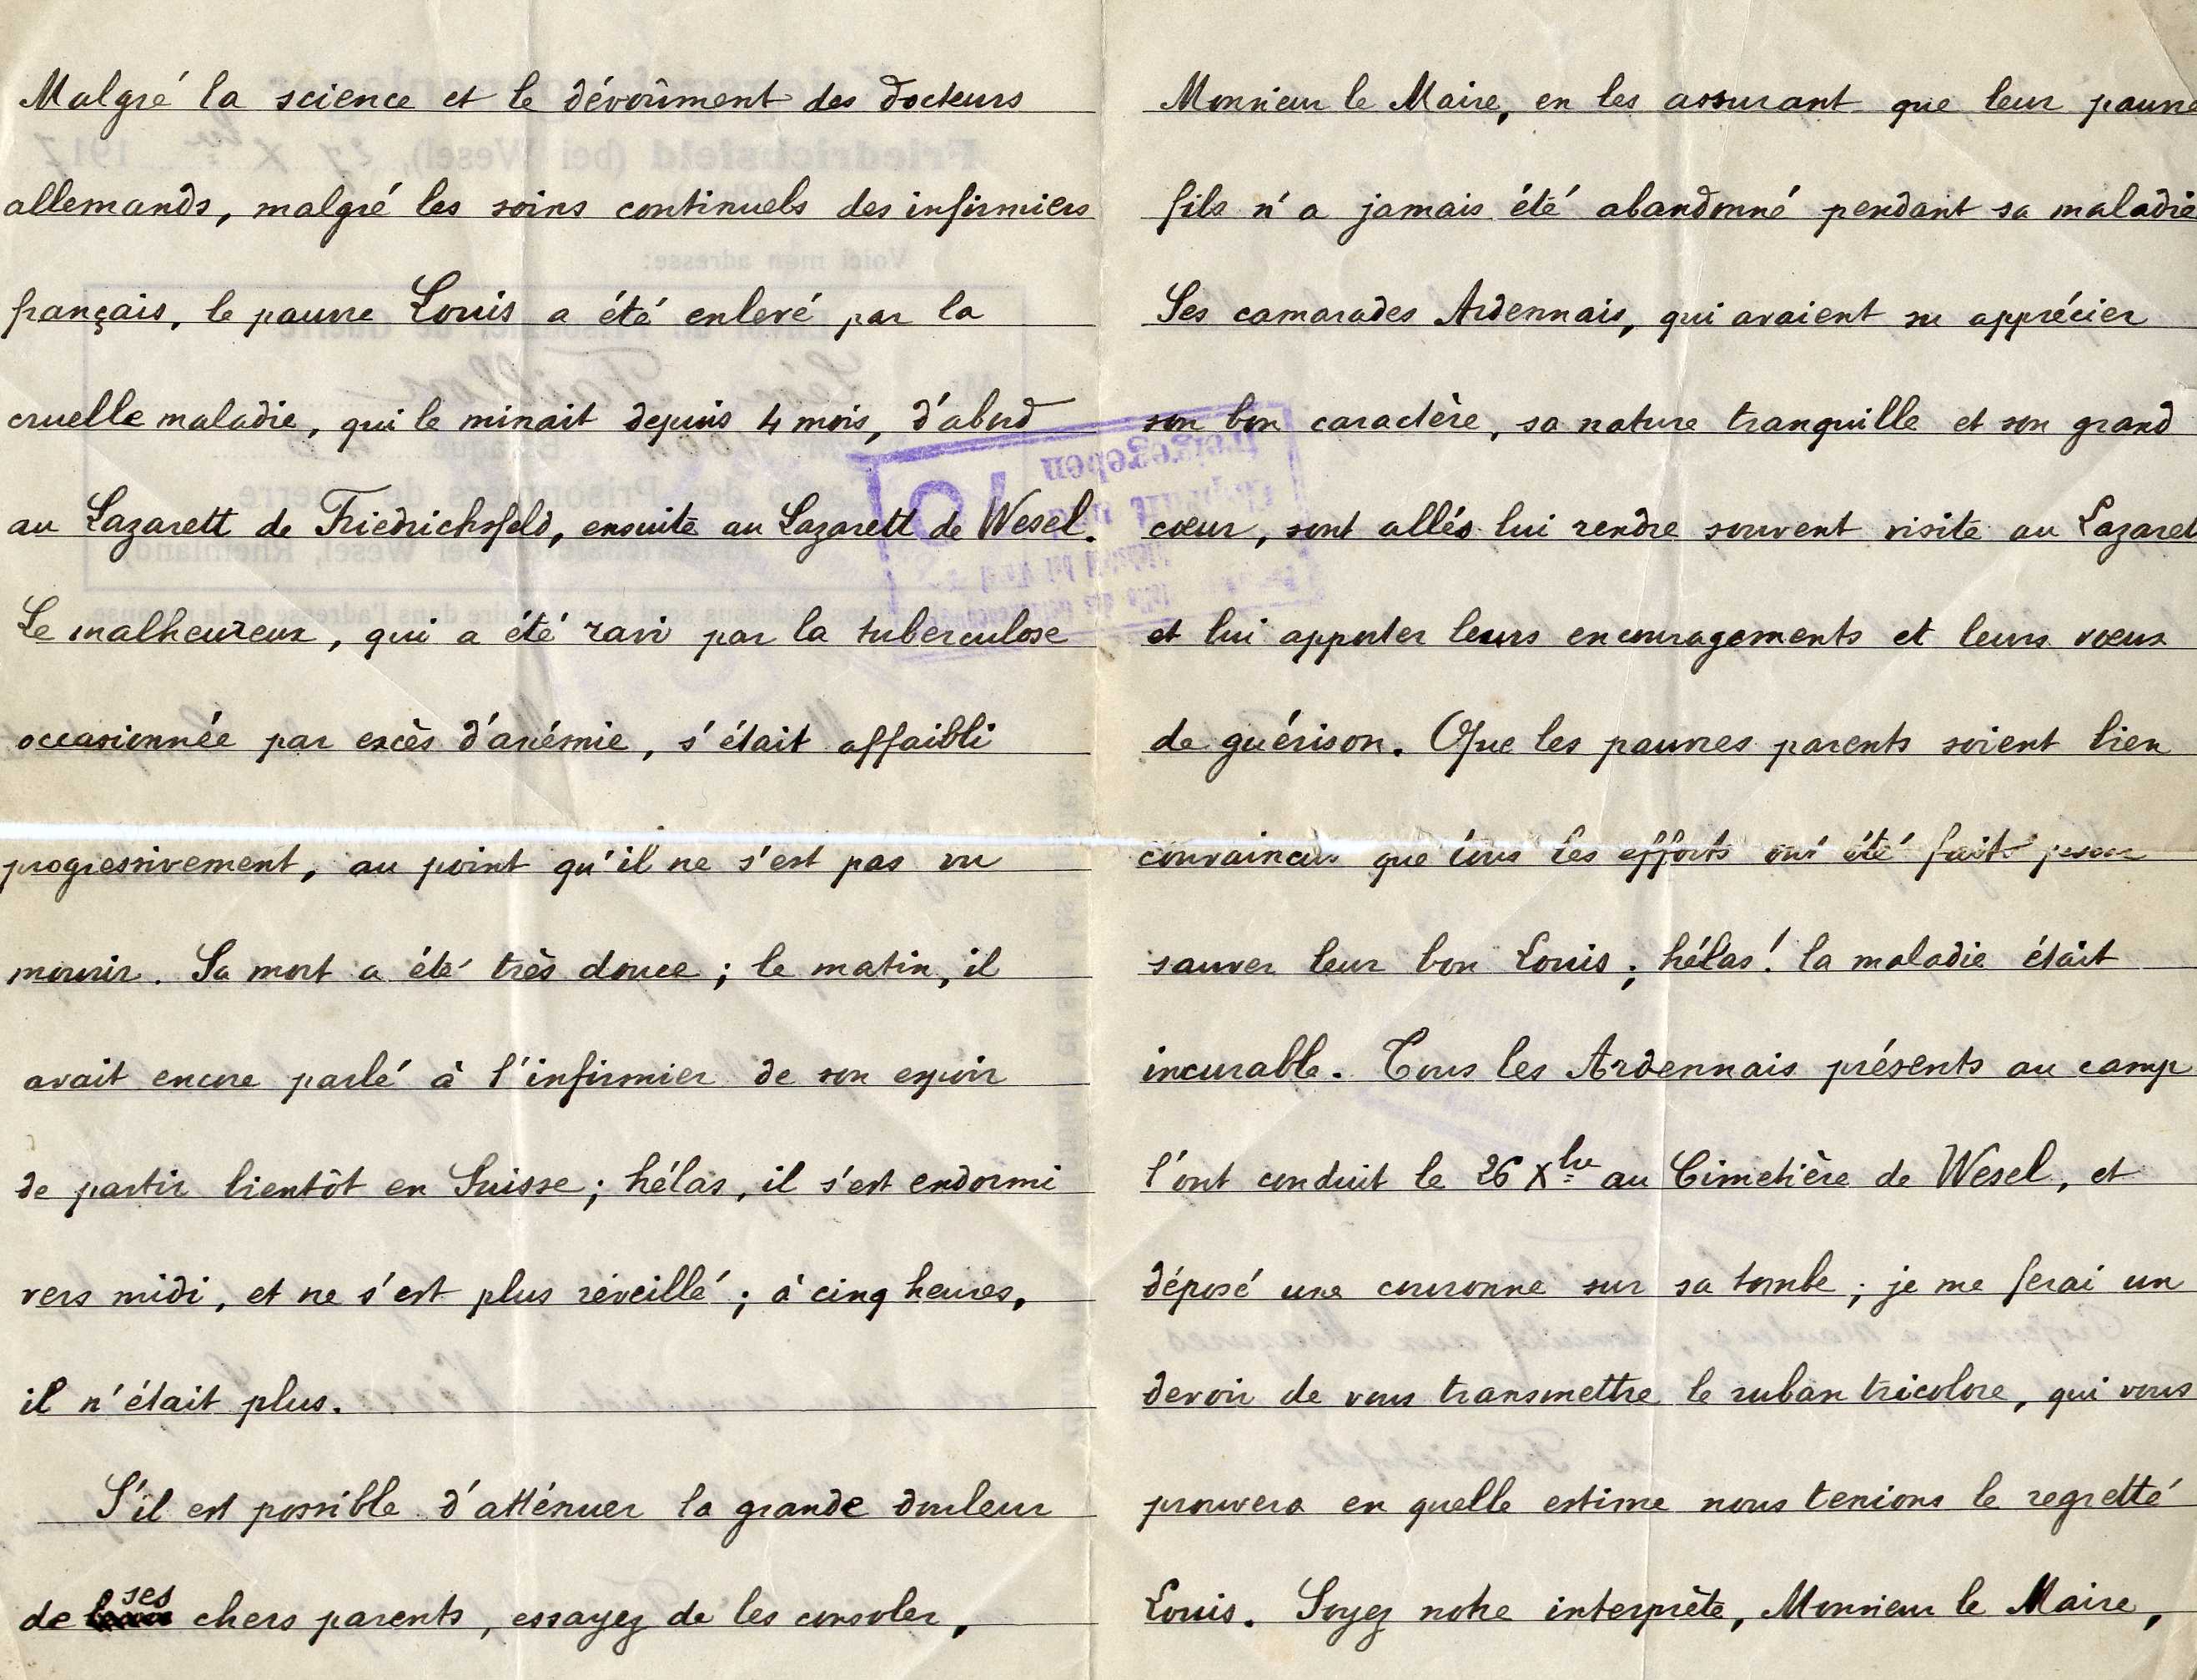 Malgré la science et le dévoûment des docteurs
allemands, malgré les soins continuels des infirmiers
français, le pauvre Louis a été enlevé par la
cruelle maladie, qui le minait depuis 4 mois, d'abord
au Lazarett de Friedrichsfeld, ensuite au Lazarett de Wesel.
Le malheureux, qui a été ravi par la tuberculose
occasionnée par excès d'anémie, s'était affaibli
progressivement, au point qu'il ne s'est pas vu
mourir. Sa mort a été très douce ; le matin, il
avait encore parlé à l'infirmier de son espoir
de partir bientôt en Suisse ; hélas, il s'est endormi
vers midi, et ne s'est plus réveillé ; à cinq heures,
il n'était plus.
S'il est possible d'atténuer la grande douleur
de ses chers parents, essayez de les consoler,
Monsieur le Maire, en les assurant que leur pauvre
fils n'a jamais été abandonné pendant sa maladie
Ses camarades Ardennais, qui avaient su apprécier
son bon caractère, sa nature tranquille et son grand
cœur, sont allés lui rendre souvent visite au Lazaret
et lui apporter leurs encouragements et leurs vœux
de guérison. Que les pauvres parents soient bien
convaincus que tous les efforts ont été faits pour
sauver leur bon Louis ; hélas ! la maladie était
incurable. Tous les Ardennais présents au camp
l'ont conduit le 26 Xbre au Cimetière de Wesel, et
déposé une couronne sur sa tombe ; je me ferai un
devoir de vous transmettre le ruban tricolore, qui vous
prouvera en quelle estime nous tenions le regretté
Louis. Soyez notre interprète, Monsieur le Maire,
freigegeben